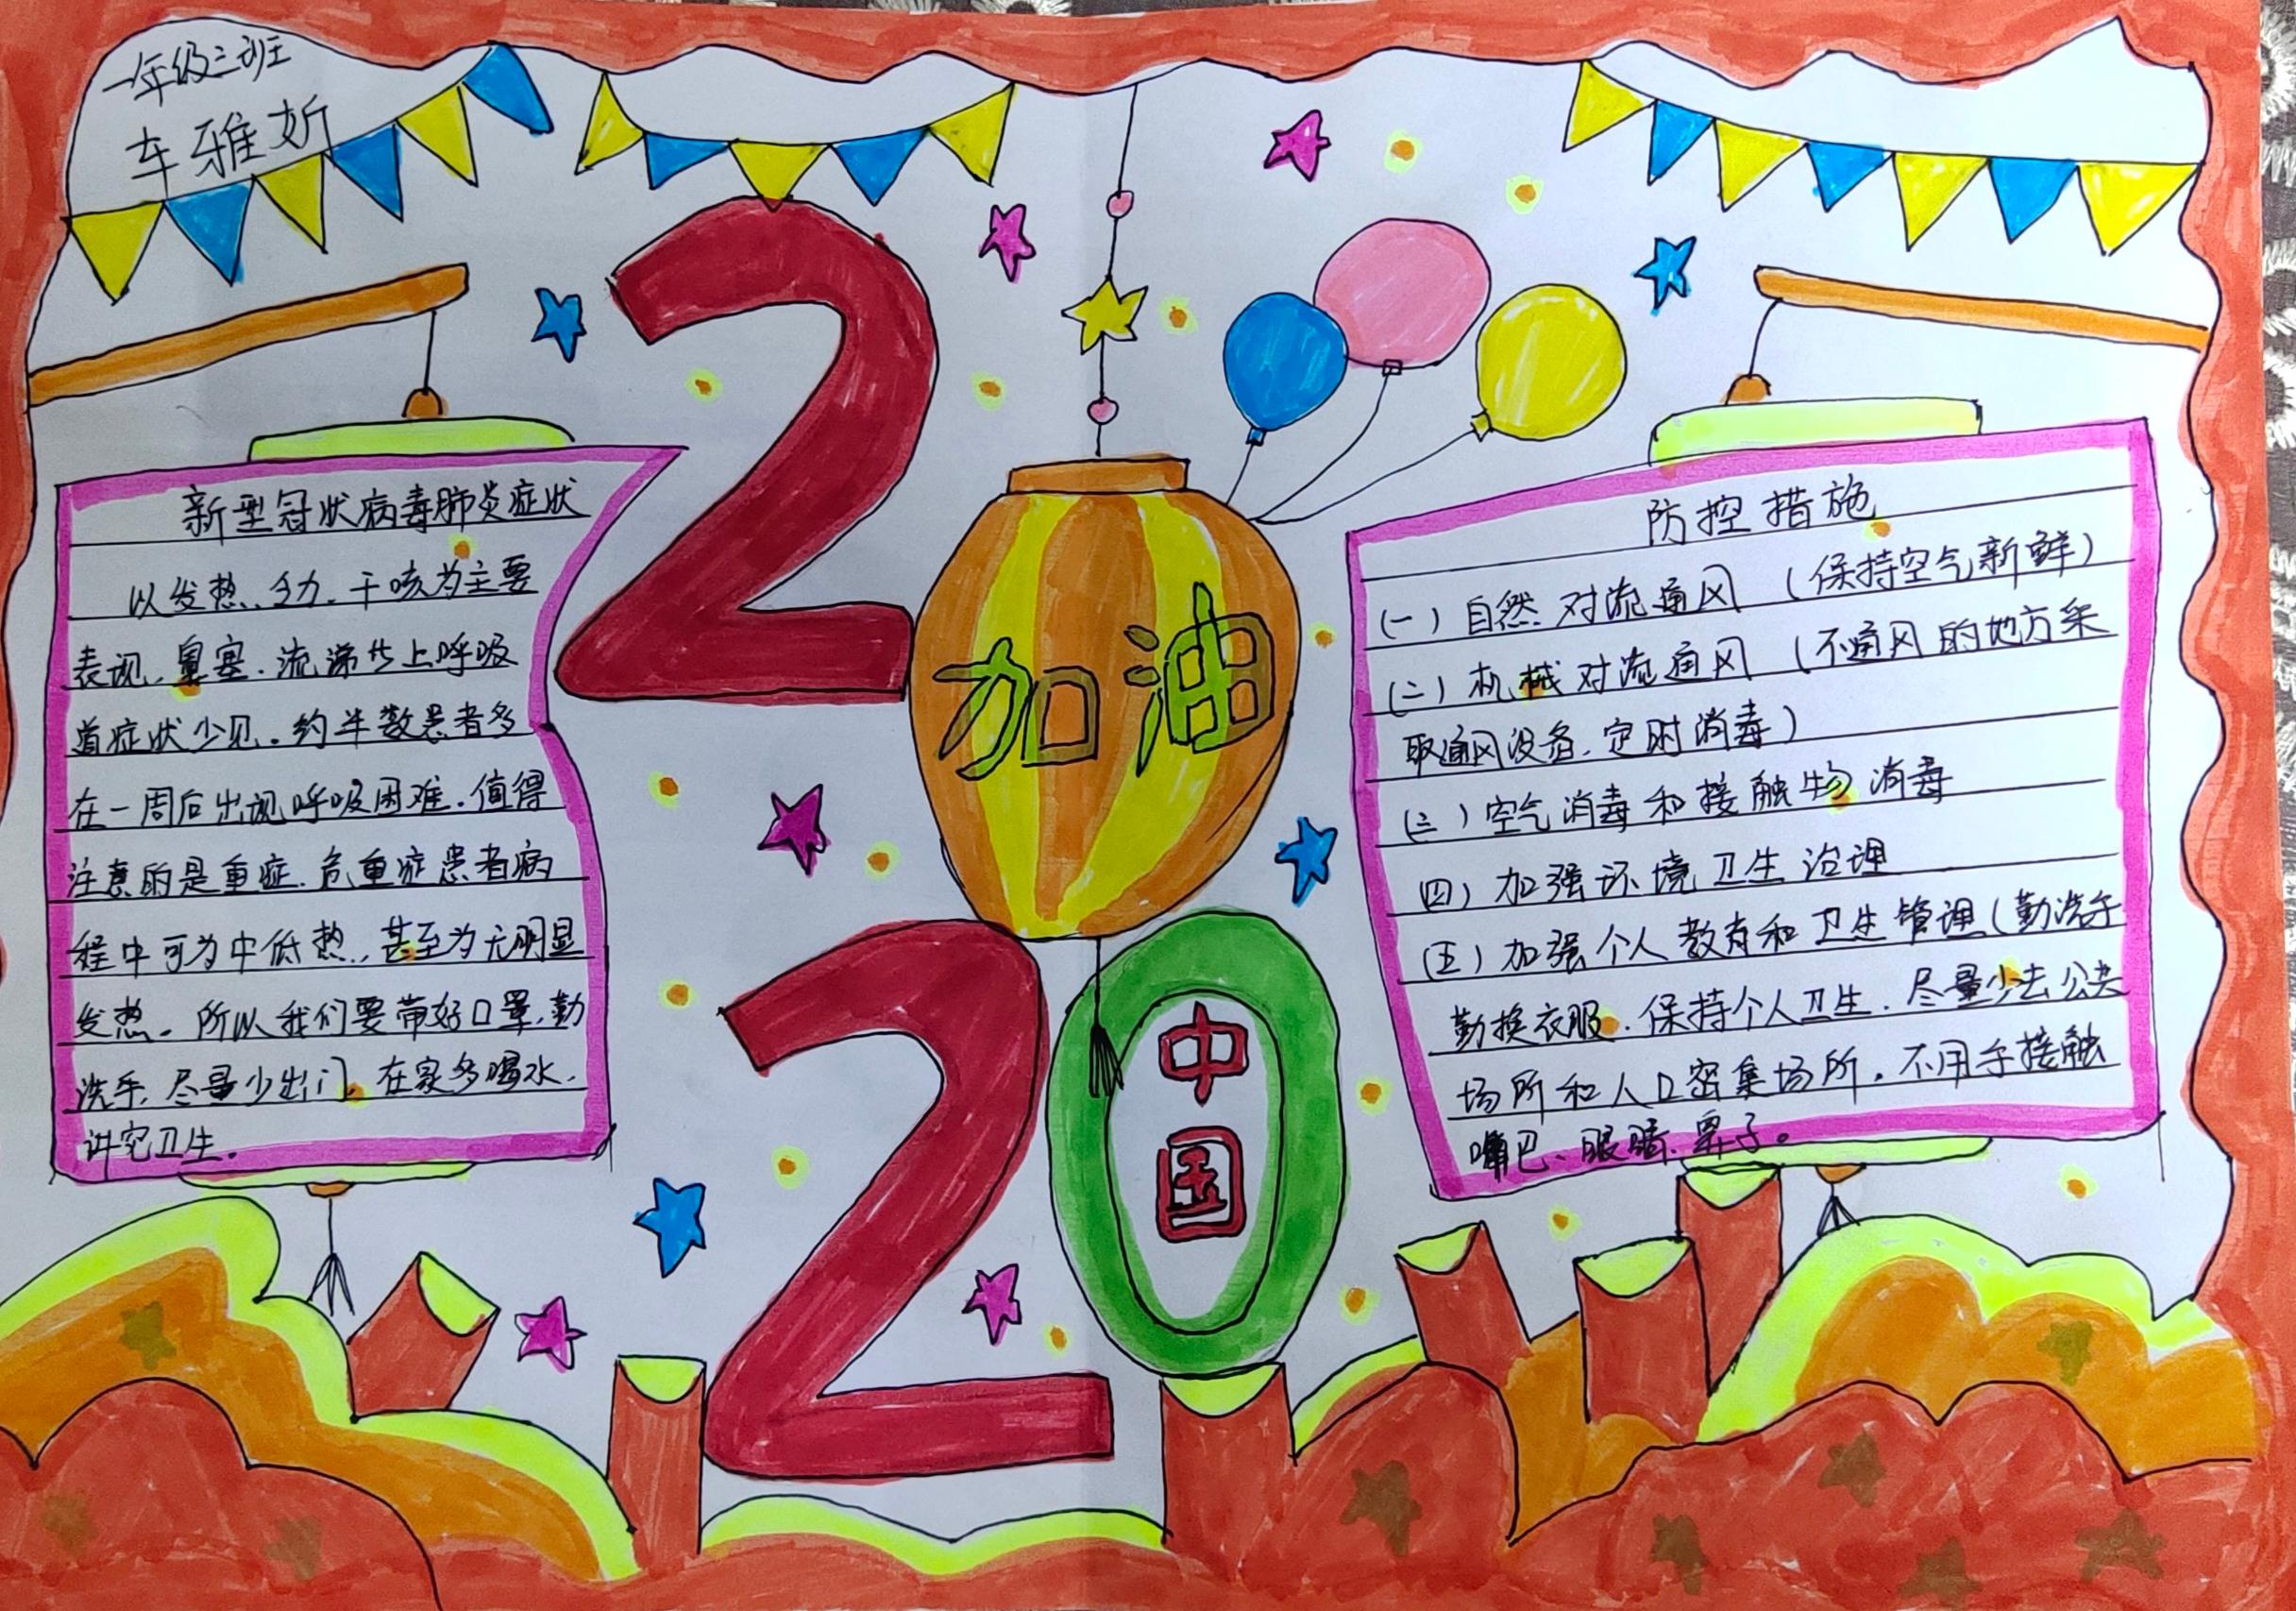 一年级三班
车雅妡
2
加油
20
中
国
新型冠状病毒肺炎症状
以发热、乏力、干咳为主要
表现，鼻塞、流涕等上呼吸
道症状少见。约半数患者多
在一周后出现呼吸困难。值得
注意的是重症、危重症患者病
程中可为中低热，甚至为无明显
发热。所以我们要带好口罩，勤
洗手，尽量少出门，在家多喝水，
讲究卫生。
防控措施
(一)自然对流通风 (保持空气新鲜)
(二)机械对流通风 (不通风的地方采
取通风设备，定时消毒)
(三)空气消毒和接触物消毒
四)加强环境卫生治理
(五)加强个人教育和卫生管理(勤洗手
勤换衣服，保持个人卫生，尽量少去公共
场所和人口密集场所，不用手接触
嘴巴、眼睛、鼻子。